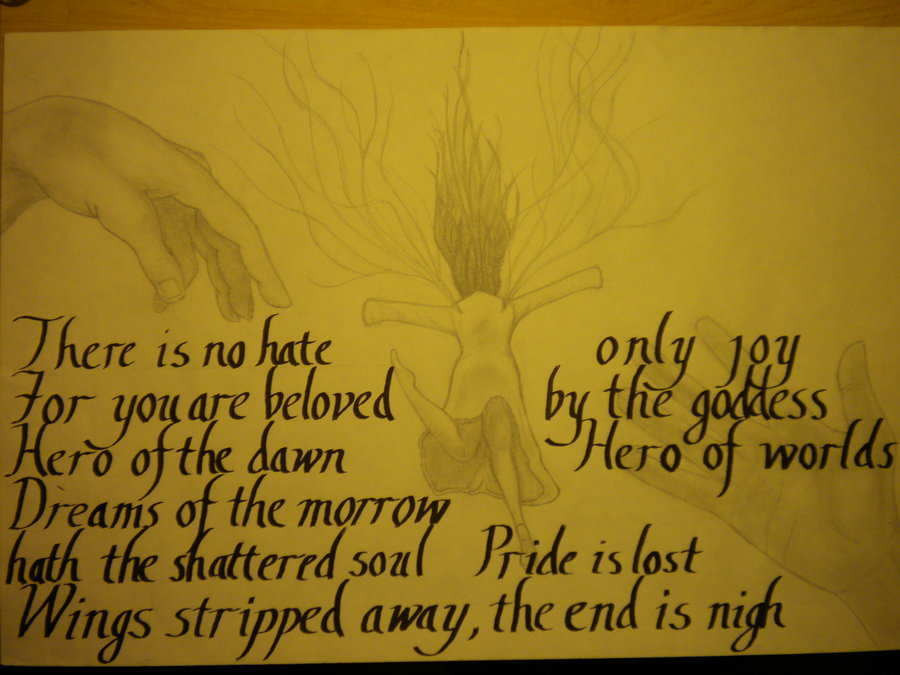 There is no hate only joy
For you are beloved by the goddess
Hero of the dawn Hero of worlds
Dreams of the morrow
hath the shattered soul Pride is lost
Wings stripped away, the end is nigh